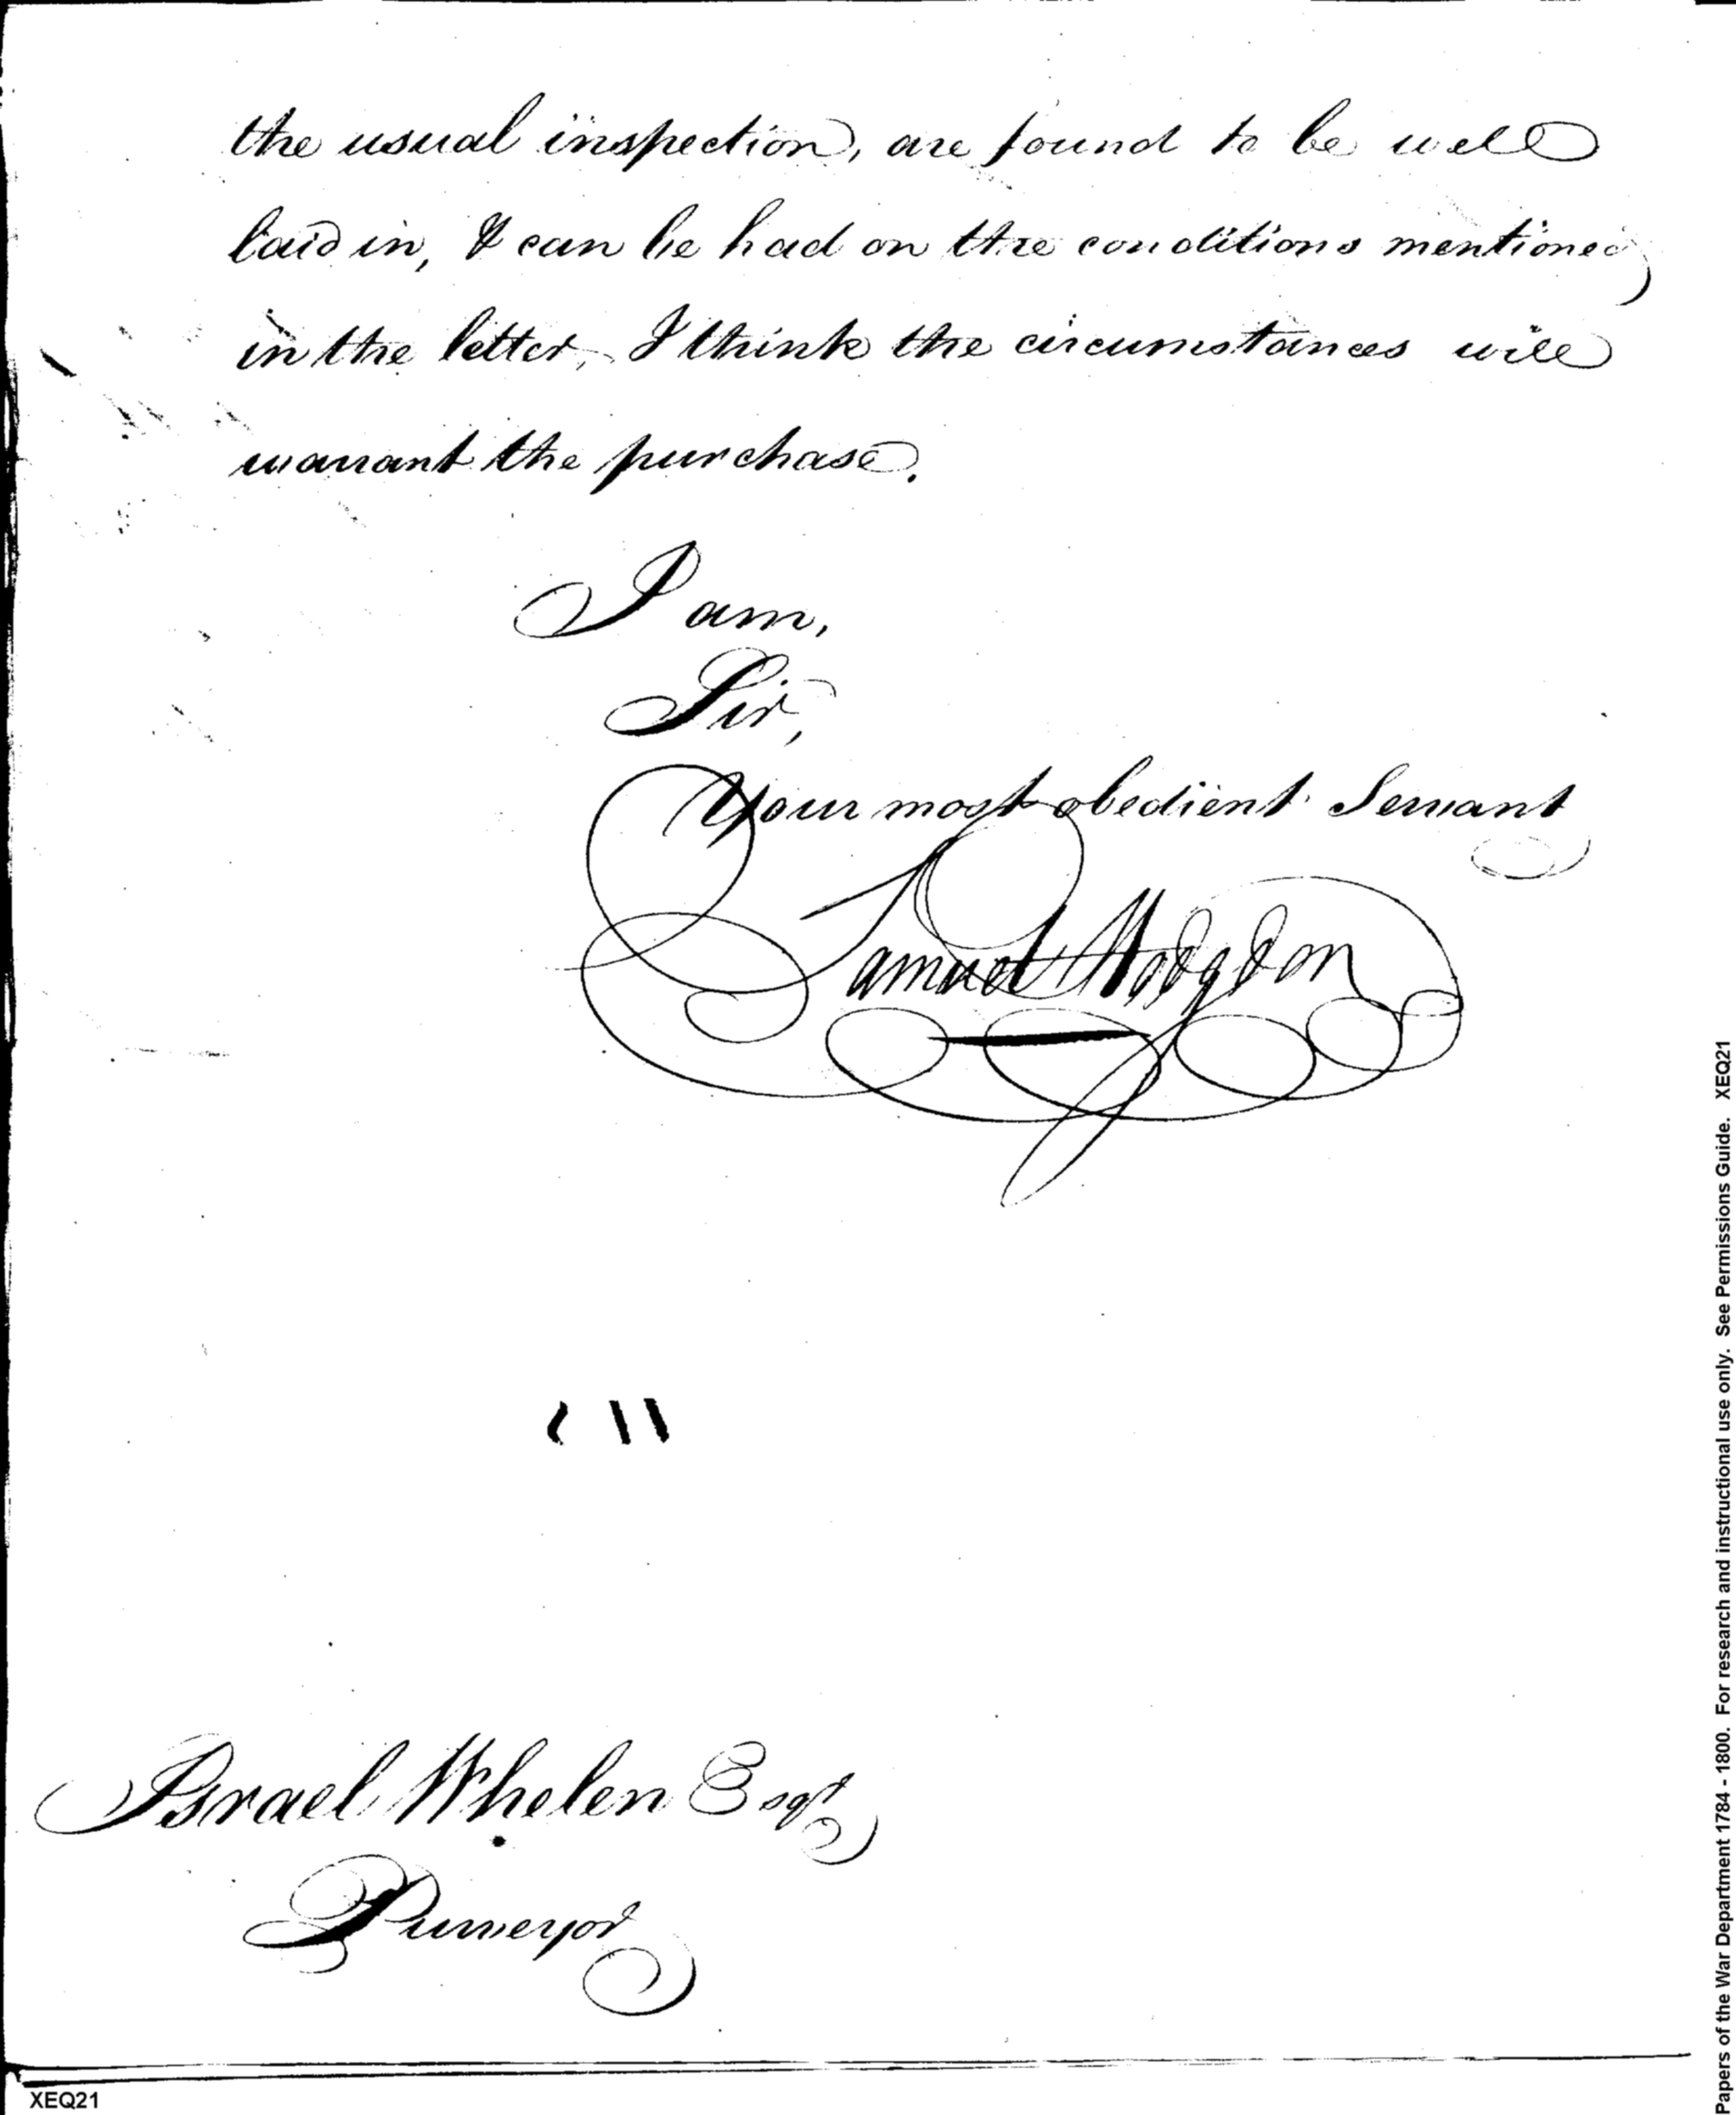 the usual inspection, are found to be well
laid in, & can be had on the conditions mentioned
in the letter, I think the circumstances will
warrant the purchase.
I am,
Sir,
Your most obedient Servant
Samuel Hodgdon
Israel Whelen Esqr
Purveyor
XEQ21
Papers of the War Department 1784 - 1800. For research and instructional use only. See Permissions Guide. XEQ21